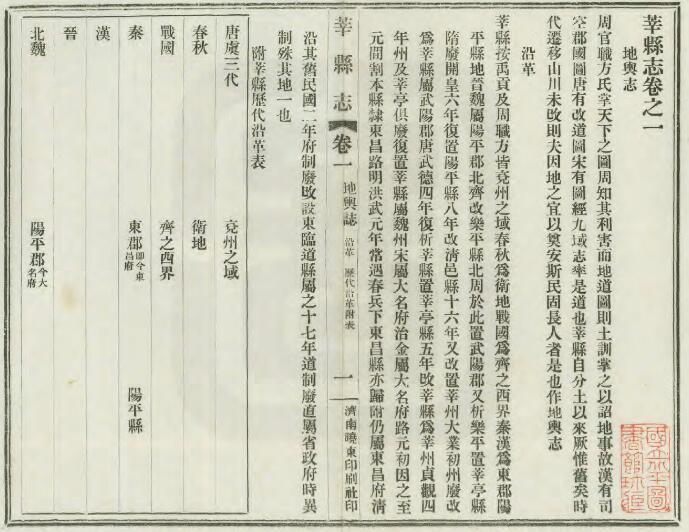 莘縣志卷之一
地輿志
周官職方氏掌天下之圖周知其利害而地道圖則土訓掌之以詔地事故漢有司
空郡國圖唐有改道圖宋有圖經九域志率是道也莘縣自分土以來厥惟舊矣時
代遷移山川未改則夫因地之宜以奠安斯民固長人者是也作地輿志
沿革
莘縣按禹貢及周職方皆兗州之域春秋爲衛地戰國爲齊之西界秦漢爲東郡陽
平縣地晉魏屬陽平郡北齊改樂平縣北周於此置武陽郡又析樂平置莘亭縣
隋廢開皇六年復置陽平縣八年改清邑縣十六年又改置莘州大業初州廢改
爲莘縣屬武陽郡唐武德四年復析莘縣置莘亭縣五年改莘縣爲莘州貞觀四
年州及莘亭俱廢復置莘縣屬魏州宋屬大名府治金屬大名府路元初因之至
元間割本縣隸東昌路明洪武元年常遇春兵下東昌縣亦歸附仍屬東昌府清
莘縣志
卷一
地輿誌
沿革 歷代沿革附表
一
濟南曉東印刷社印
沿其舊民國二年府制廢改設東臨道縣屬之十七年道制廢直屬省政府時異
制殊其地一也
附莘縣歷代沿革表
唐虞三代 兗州之域
春秋 衛地
戰國 齊之西界
秦 東郡即今東昌府 陽平縣
漢
晉
北魏 陽平郡今大名府